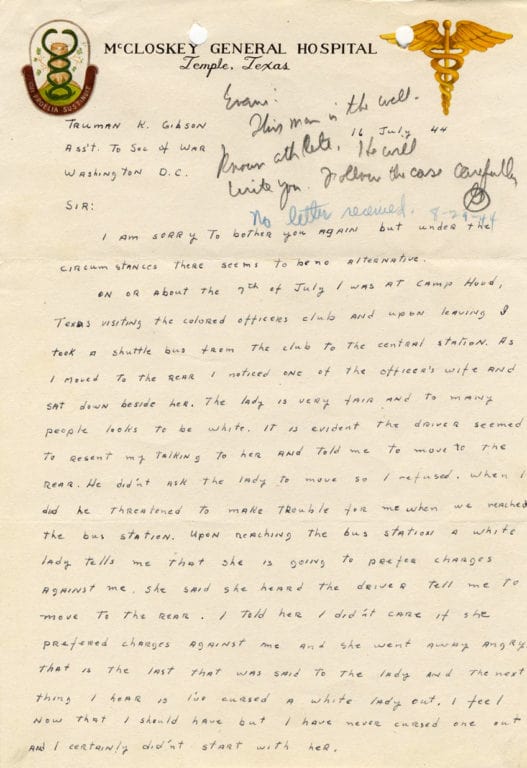 McCLOSKEY GENERAL HOSPITAL
Temple, Texas
PROELIA SUSTINUIT
Evans:
This man is the well.
TRUMAN K. GIBSON
16 July 44
ASS'T. TO SEC OF WAR
known athlete. He will
WASHINGTON D.C.
write you. Follow the case carefully
SIR:
No letter received. 8-29-44
I AM SORRY TO BOTHER YOU AGAIN but under the
circumstances there seems to be no alternative.
ON OR ABOUT the 7th of July I was AT CAMP HOOD,
TEXAS visiting the colored officers club and upon leaving I
took a shuttle bus from the club to the central station. As
I moved to the rear I noticed one of the officer's wife and
sat down beside her. The lady is very fair and to many
people looks to be white. It is evident the driver seemed
to resent my talking to her and told me to move to the
rear. He didn't ask the lady to move so I refused. When I
did he threatened to make trouble for me when we reached
the bus station. Upon reaching the bus station a white
lady tells me that she is going to prefer charges
against me. She said she heard the driver tell me to
move to the rear. I told her I didn't care if she
preferred charges against me and she went away angry.
that is the last that was said to the lady and the next
thing I hear is I've cursed a white lady out. I feel
now that I should have but I have never cursed one out
and I certainly didn't start with her.